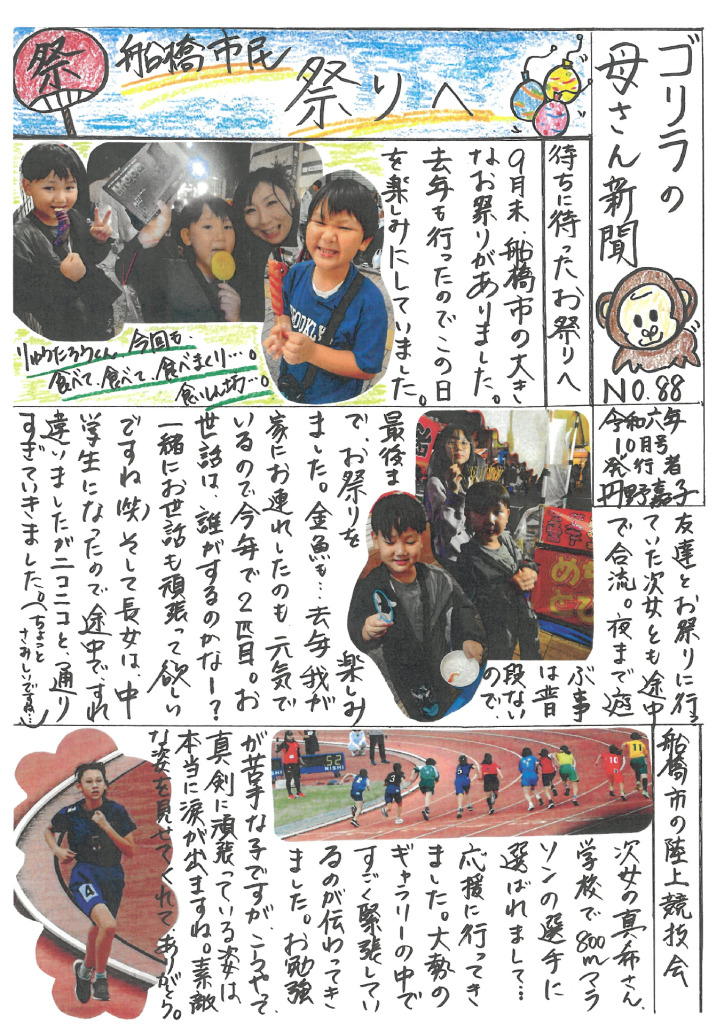 ゴリラの
母さん新聞
NO.88
令和六年
10月号
発行者
円野嘉子
祭
船橋市民
祭りへ
待ちに待ったお祭りへ
9月末、船橋市の大き
なお祭りがありました。
去年も行ったのでこの日
を楽しみにしていました。
りゅうたろうくん 今回も
食べて、食べて、食べまくり…。
食いしん坊…。
友達とお祭りに行っ
ていた次女とも途中
で合流。夜まで遊
ぶ事
は普
段ない
ので、
楽しみ
最後ま
で、お祭りを
ました。金魚も…去年我が
家にお連れしたのも元気で
いるので今年で2匹目。お
世話は、誰がするのかなー?
一緒にお世話も頑張って欲しい
ですね(笑)そして長女は、中
学生になったので途中ですれ
違いましたがニコニコと、通り
すぎていきました。(ちょっと
さみしいですね…)
船橋市の陸上競技会
次女の真希さん、
学校で800mマラ
ソンの選手に
選ばれまして…
応援に行ってき
ました。大勢の
ギャラリーの中で
すごく緊張してい
るのが伝わってき
ました。お勉強
が苦手な子ですが、こうやって
真剣に頑張っている姿は、
本当に涙が出ますね。素敵
な姿を見せてくれてありがとう。